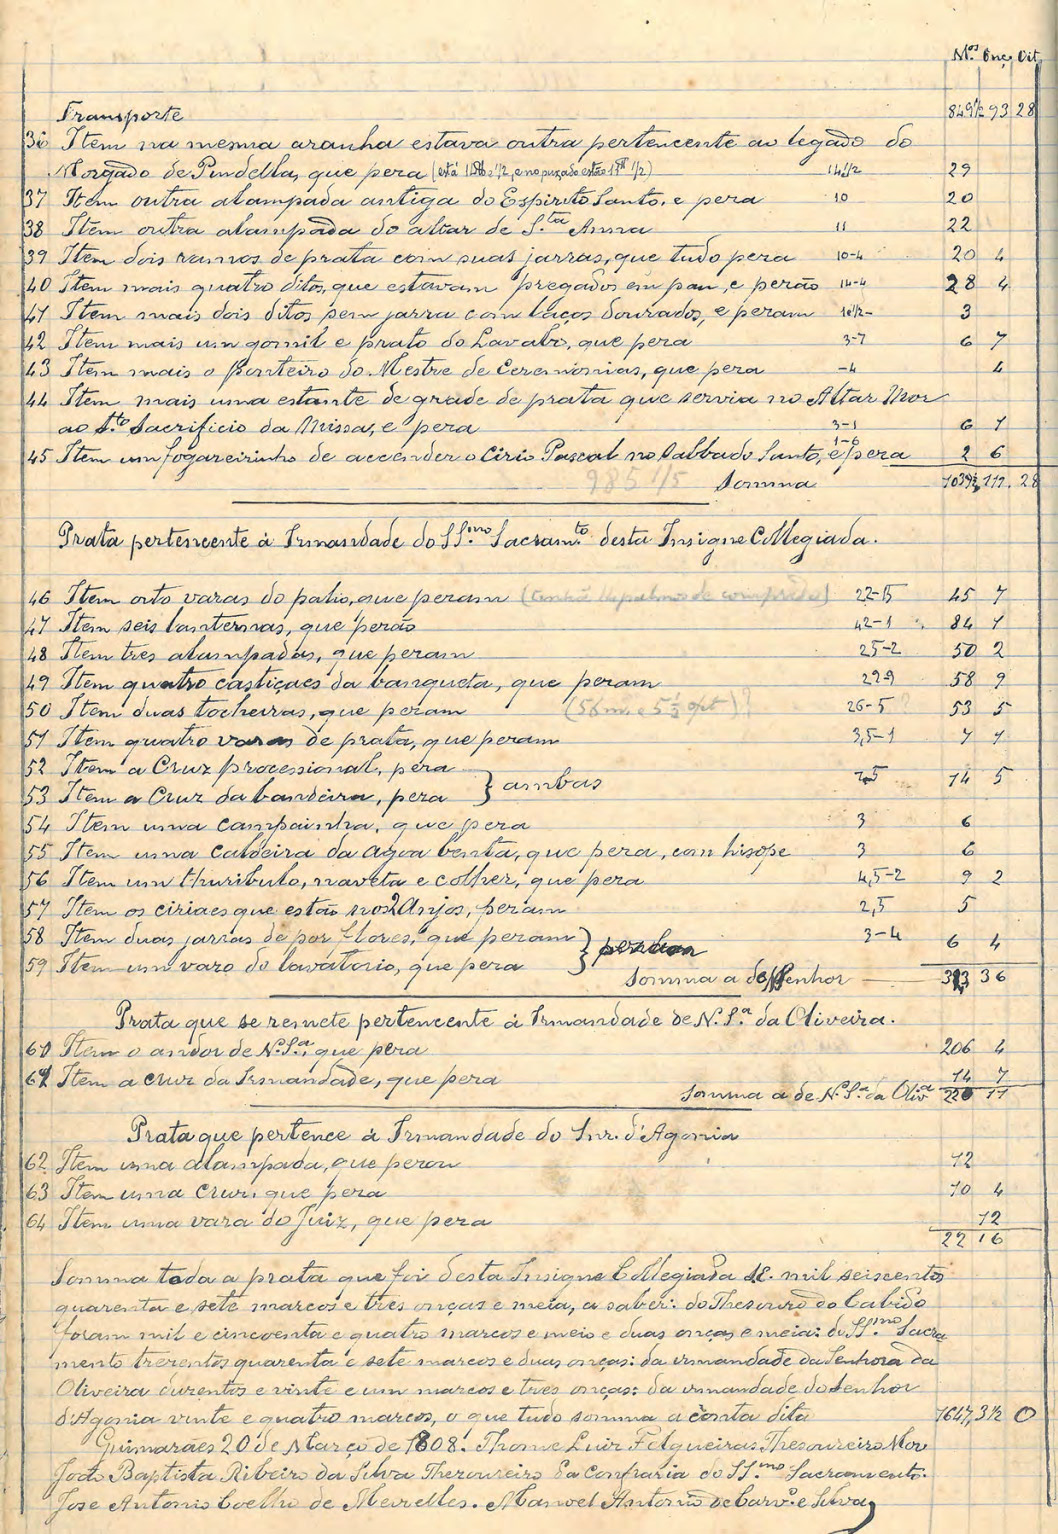 M.os Onç Oit
Transporte 849 1/2 93 28
36 Item na mesma aranha estava outra pertencente ao legado do
Morgado de Pindella, que pera (está 14 1/2, e no puxado estão 1/2) 14 1/2 29
37 Item outra alampada antiga do Espirito Santo, e pera 10 20
38 Item outra alampada do altar de S.ta Anna 11 22
39 Item dois ramos de prata com suas jarras, que tudo pera 10-4 20 4
40 Item mais quatro ditos, que estavam pregados em pau, e perão 14-4 28 4
41 Item mais dois ditos sem jarra com laços dourados, e peram 1 1/2- 3
42 Item mais um gomil e prato do Lavabo, que pera 3-7 6 7
43 Item mais o Ponteiro do Mestre de Ceremonias, que pera -4 4
44 Item mais uma estante de grade de prata que servia no Altar Mor
ao S.to Sacrificio da Missa, e pera 3-1 6 1
45 Item um fogareirinho de accender o Cirio Pascal no Sabbado Santo, e pera 1-6 2 6
985 1/5 Somma 1039 1/2, 111, 28
Prata pertencente á Irmandade do SS.mo Sacram.to desta Insigne Collegiada.
46 Item oito varas do palio, que peram 22-15 45 7
47 Item seis lanternas, que perão 42-1 84 1
48 Item tres alampadas, que peram 25-2 50 2
49 Item quatro castiçaes da banqueta, que peram 229 58 9
50 Item duas tocheiras, que peram (56 m. e 5 1/2 oit)? 26-5 53 5
51 Item quatro varas de prata, que peram 3,5-1 7 1
52 Item a Cruz processional, pera
53 Item a Cruz da bandeira, pera } ambas 7,5 14 5
54 Item uma campainha, que pera 3 6
55 Item uma caldeira da agoa benta, que pera, com hisope 3 6
56 Item um thuribulo, naveta e colher, que pera 4,5-2 9 2
57 Item os ciriaes que estão nos 2 Anjos, peram 2,5 5
58 Item duas jarras de por flores, que peram } 3-4 6 4
59 Item um vazo do lavatorio, que pera
Somma a do Senhor 343 36
Prata que se remete pertencente á Irmandade de N. S.a da Oliveira.
60 Item o andor de N. S.a, que pera 206 4
61 Item a cruz da Irmandade, que pera 14 7
Somma a de N. S.a da Oliv.a 220 11
Prata que pertence á Irmandade do Snr. d'Agonia
62 Item uma alampada, que perou 12
63 Item uma cruz, que pera 10 4
64 Item uma vara do Juiz, que pera 12
22 16
Somma toda a prata que foi desta Insigne Collegiada mil seiscentos
quarenta e sete marcos e tres onças e meia, a saber: do Thesouro do Cabido
foram mil e cincoenta e quatro marcos e meio e duas onças e meia: do SS.mo Sacra
mento trezentos quarenta e sete marcos e duas onças: da irmandade da Senhora da
Oliveira duzentos e vinte e um marcos e tres onças: da irmandade do Senhor
d'Agonia vinte e quatro marcos, o que tudo somma a conta dita 1647, 3 1/2 0
Guimarães 20 de Março de 1808. Thome Luiz Felgueiras Thesoureiro Mor
João Baptista Ribeiro da Silva Thezoureiro da Confraria do SS.mo Sacramento.
Jose Antonio Coelho de Meirelles. Manoel Antonio de Carv.o e Silva